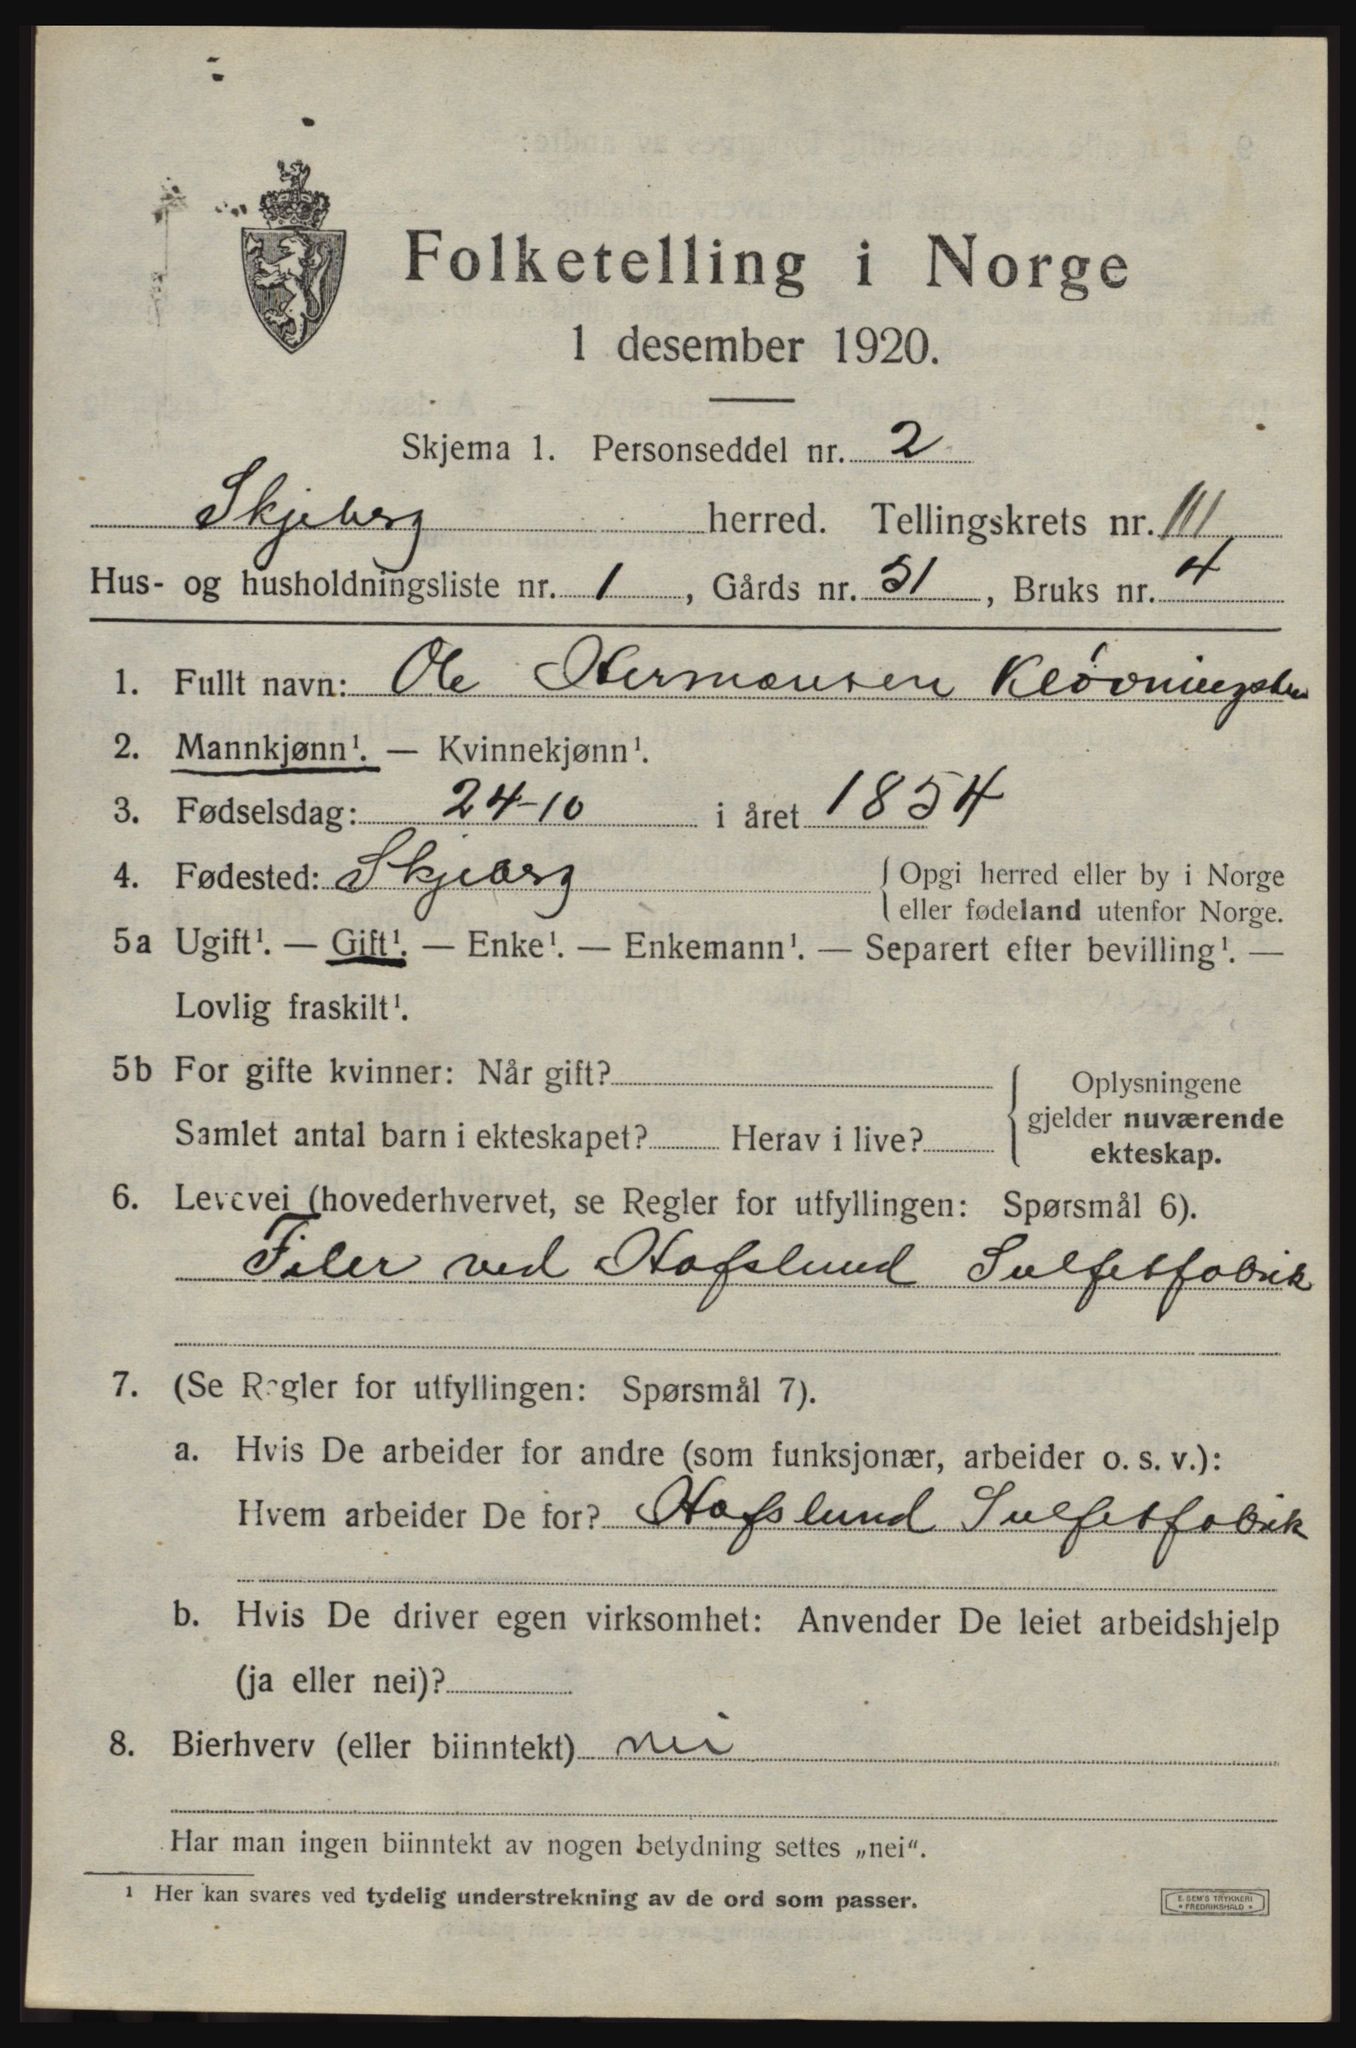 Folketelling i Norge
1 desember 1920.
Skjema 1. Personseddel nr. 2
Skjeberg herred. Tellingskrets nr. III
Hus- og husholdningsliste nr. 1, Gårds nr. 51, Bruks nr. 4
1. Fullt navn: Ole Hermansen Kløvningsten
2. Mannkjønn¹. — Kvinnekjønn¹.
3. Fødselsdag: 24-10 i året 1854
4. Fødested: Skjeberg { Opgi herred eller by i Norge
eller fødeland utenfor Norge.
5a Ugift¹. — Gift¹. — Enke¹. — Enkemann¹. — Separert efter bevilling¹. —
Lovlig fraskilt¹.
5b For gifte kvinner: Når gift? { Oplysningene
gjelder nuværende
Samlet antal barn i ekteskapet? Herav i live?
ekteskap.
6. Levevei (hovederhvervet, se Regler for utfyllingen: Spørsmål 6).
Filer ved Hafslund Sulfitfabrik
7. (Se Regler for utfyllingen: Spørsmål 7).
a. Hvis De arbeider for andre (som funksjonær, arbeider o. s. v.):
Hvem arbeider De for? Hafslund Sulfitfabrik
b. Hvis De driver egen virksomhet: Anvender De leiet arbeidshjelp
(ja eller nei)?
8. Bierhverv (eller biinntekt) nei
Har man ingen biinntekt av nogen betydning settes „nei“.
¹ Her kan svares ved tydelig understrekning av de ord som passer.
E. SEM'S TRYKKERI
* FREDRIKSHALD *